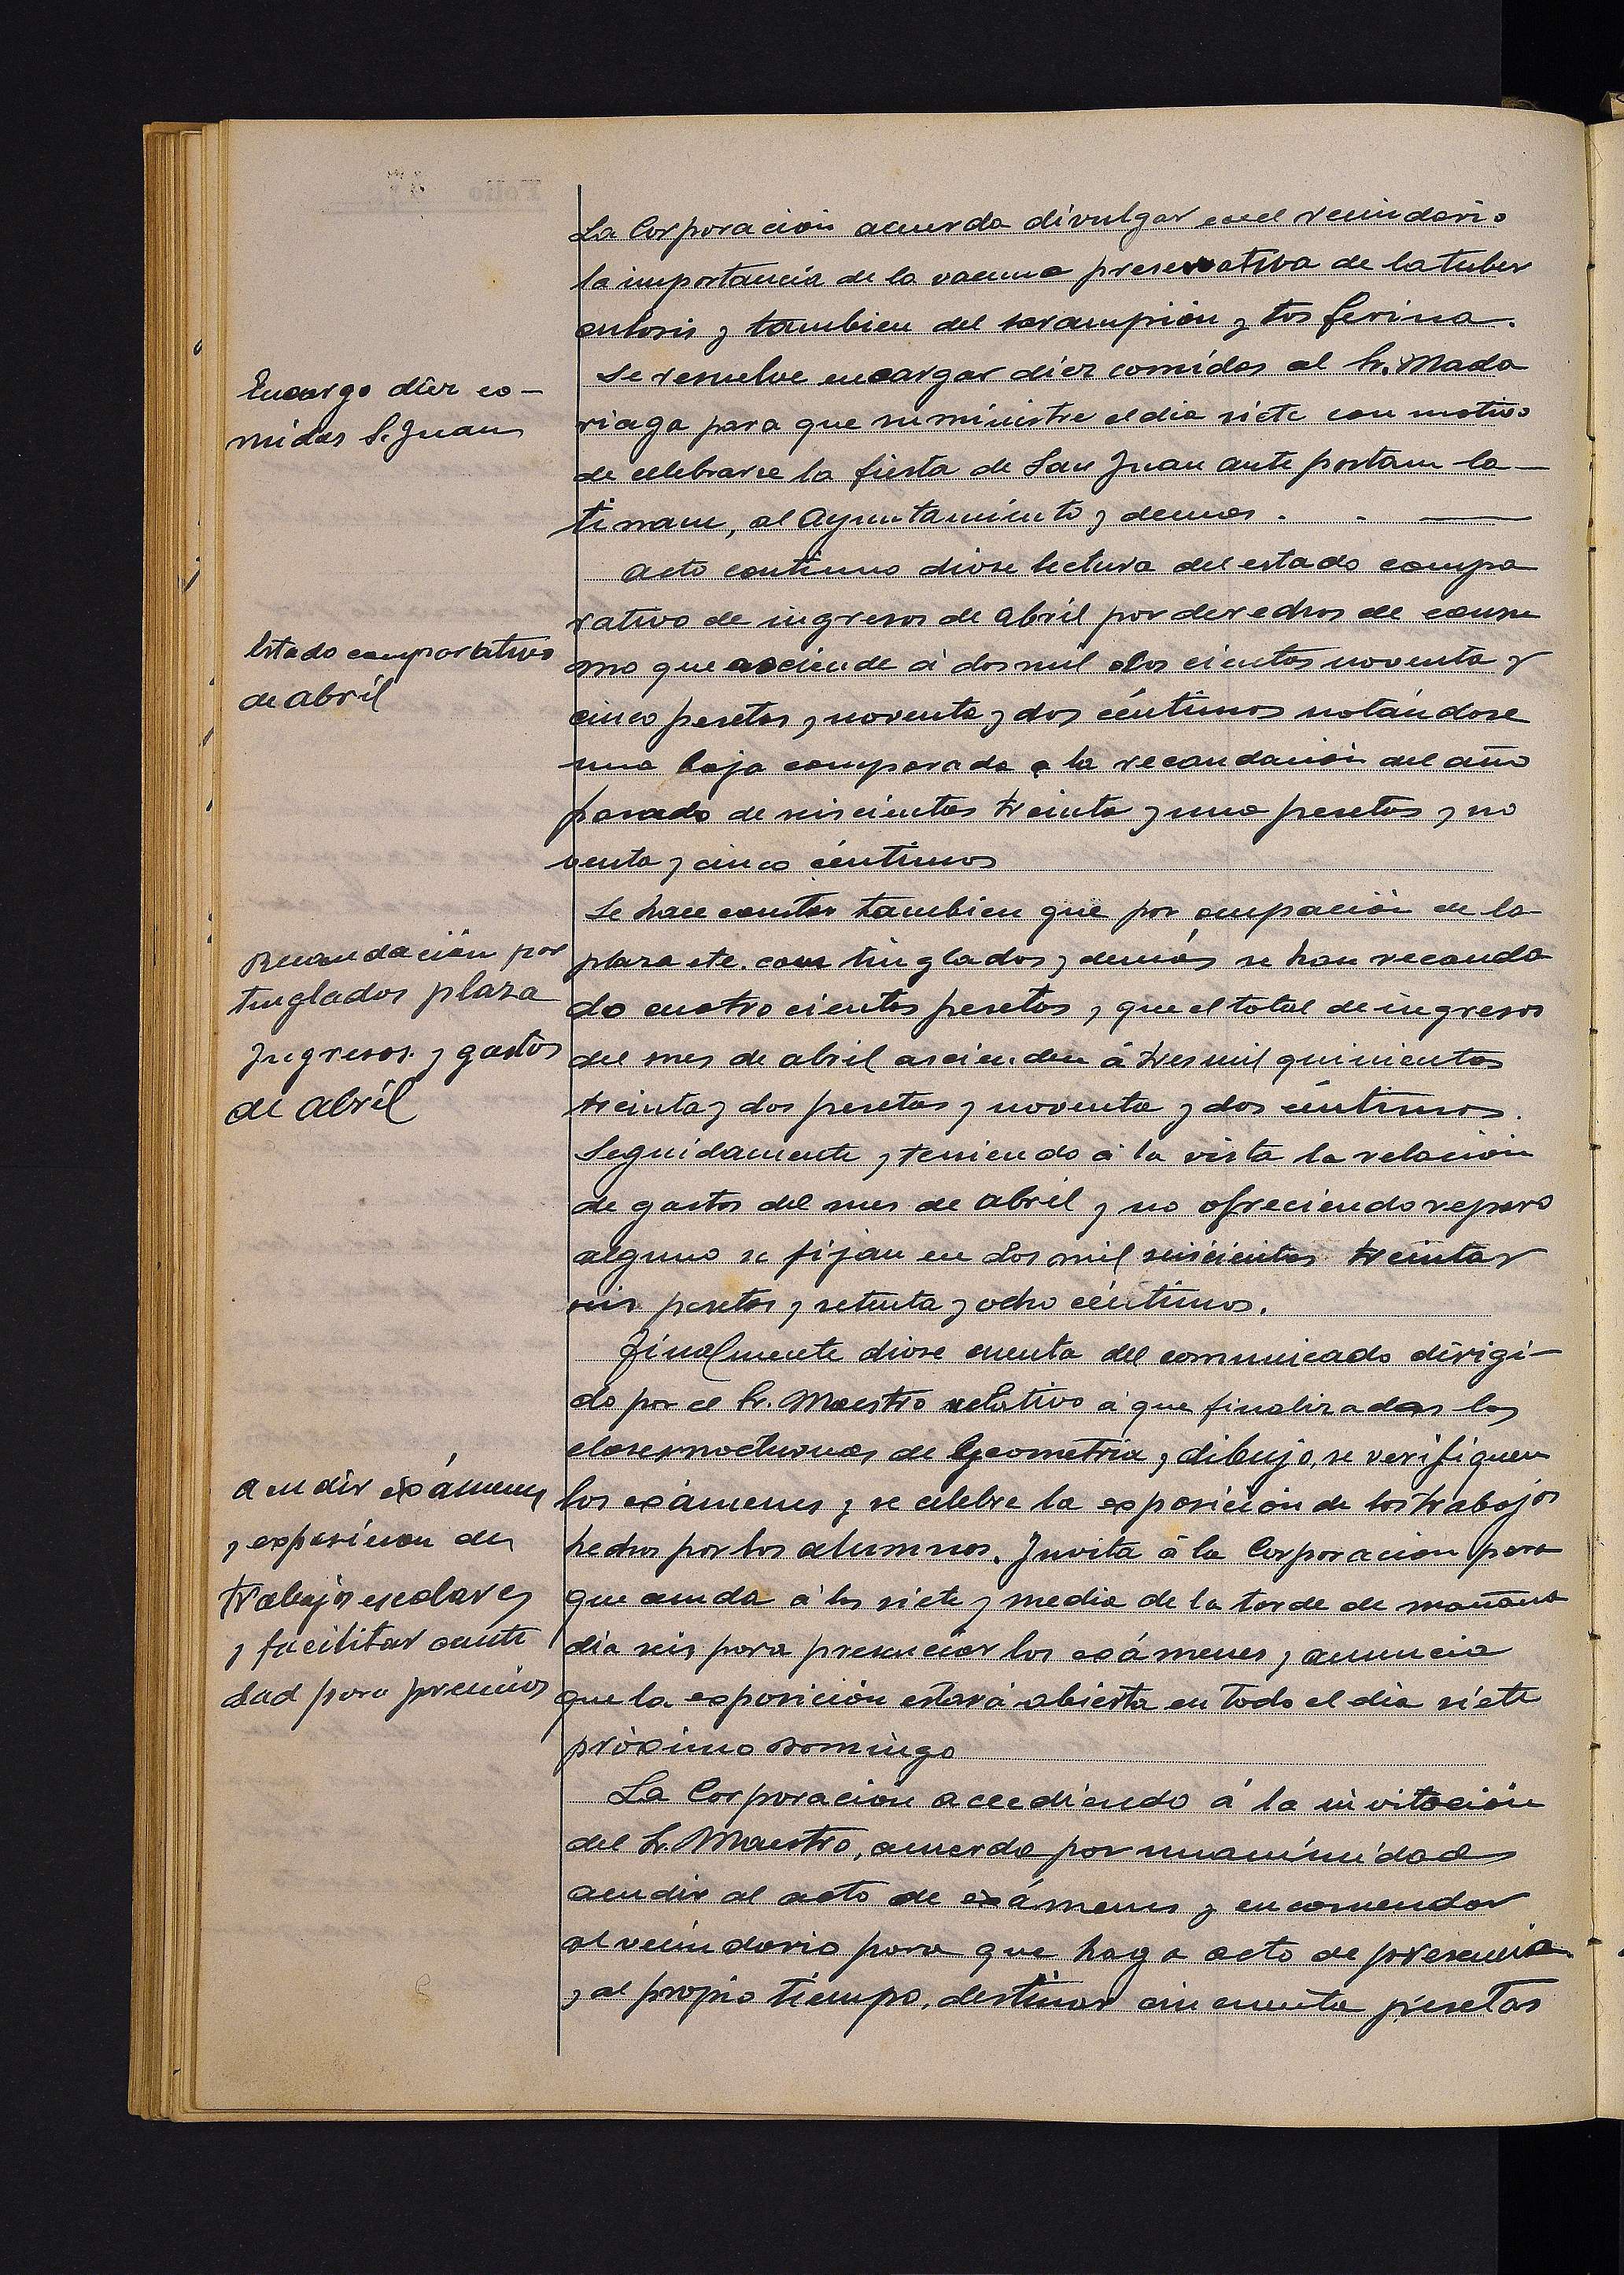 La Corporación acuerda divulgar en el vecindario
la importancia de la vacuna preservativa de la tuber
culosis y tambien del sarampión y tos ferina.
Encargo diez co-
midas S. Juan
Se resuelve encargar diez comidas al Sr. Mada
riaga para que suministre el dia siete con motivo
de celebrarse la fiesta de San Juan ante portam la-
tinam, al Ayuntamiento y demas.
Estado comparativo
de abril
Acto continuo diose lectura del estado compa
rativo de ingresos de abril por derechos de consu
mo que asciende á dos mil doscientas noventa y
cinco pesetas y noventa y dos céntimos notándose
una baja comparada a la recaudación del año
pasado de seiscientas treinta y una pesetas y no
venta y cinco céntimos
Recaudación por
tinglados plaza
Ingresos y gastos
de abril
Se hace constar tambien que por ocupación en la
plaza etc. con tinglados y demás se han recauda
do cuatrocientas pesetas y que el total de ingresos
del mes de abril ascienden á tres mil quinientas
treinta y dos pesetas y noventa y dos céntimos.
Seguidamente y teniendo á la vista la relación
de gastos del mes de abril y no ofreciendo reparo
alguno se fijan en dos mil seiscientas treinta y
seis pesetas y setenta y ocho céntimos.
Finalmente diose cuenta del comunicado dirigi-
do por el Sr. Maestro relativo á que finalizadas las
clases nocturnas de Geometria y dibujo, se verifiquen
Acudir exámenes
y exposicion de
trabajos escolares
y facilitar canti
dad para premios
los exámenes y se celebre la exposición de los trabajos
hechos por los alumnos. Invita á la Corporación para
que acuda á las siete y media de la tarde de mañana
dia seis para presenciar los exámenes y anuncia
que la exposición estará abierta en todo el dia siete
próximo Domingo
La Corporación accediendo á la invitación
del Sr. Maestro, acuerda por unanimidad
acudir al acto de exámenes y encomendar
al vecindario para que haga acto de presencia
y al propio tiempo, destinar cincuenta pesetas